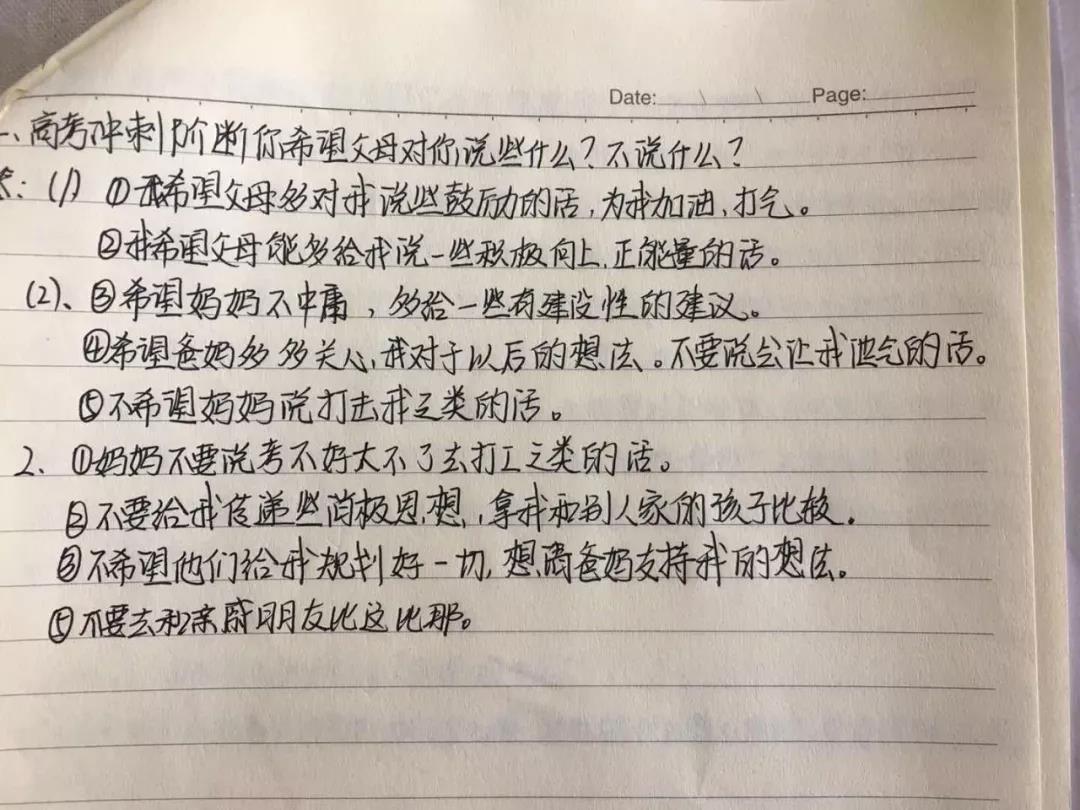 Date: \ \ Page:
一、高考冲刺阶断你希望父母对你说些什么?不说什么?
答:(1) ①我希望父母多对我说些鼓励的话,为我加油、打气。
②我希望父母能多给我说一些积极向上、正能量的话。
(2)、③希望妈妈不中庸,多给一些有建设性的建议。
④希望爸妈多多关心我对于以后的想法。不要说会让我泄气的话。
⑤不希望妈妈说打击我之类的话。
2、①妈妈不要说考不好大不了去打工之类的话。
②不要给我传递些消极思想,拿我和别人家的孩子比较。
③不希望他们给我规划好一切,想离爸妈支持我的想法。
⑤不要去和亲戚朋友比这比那。